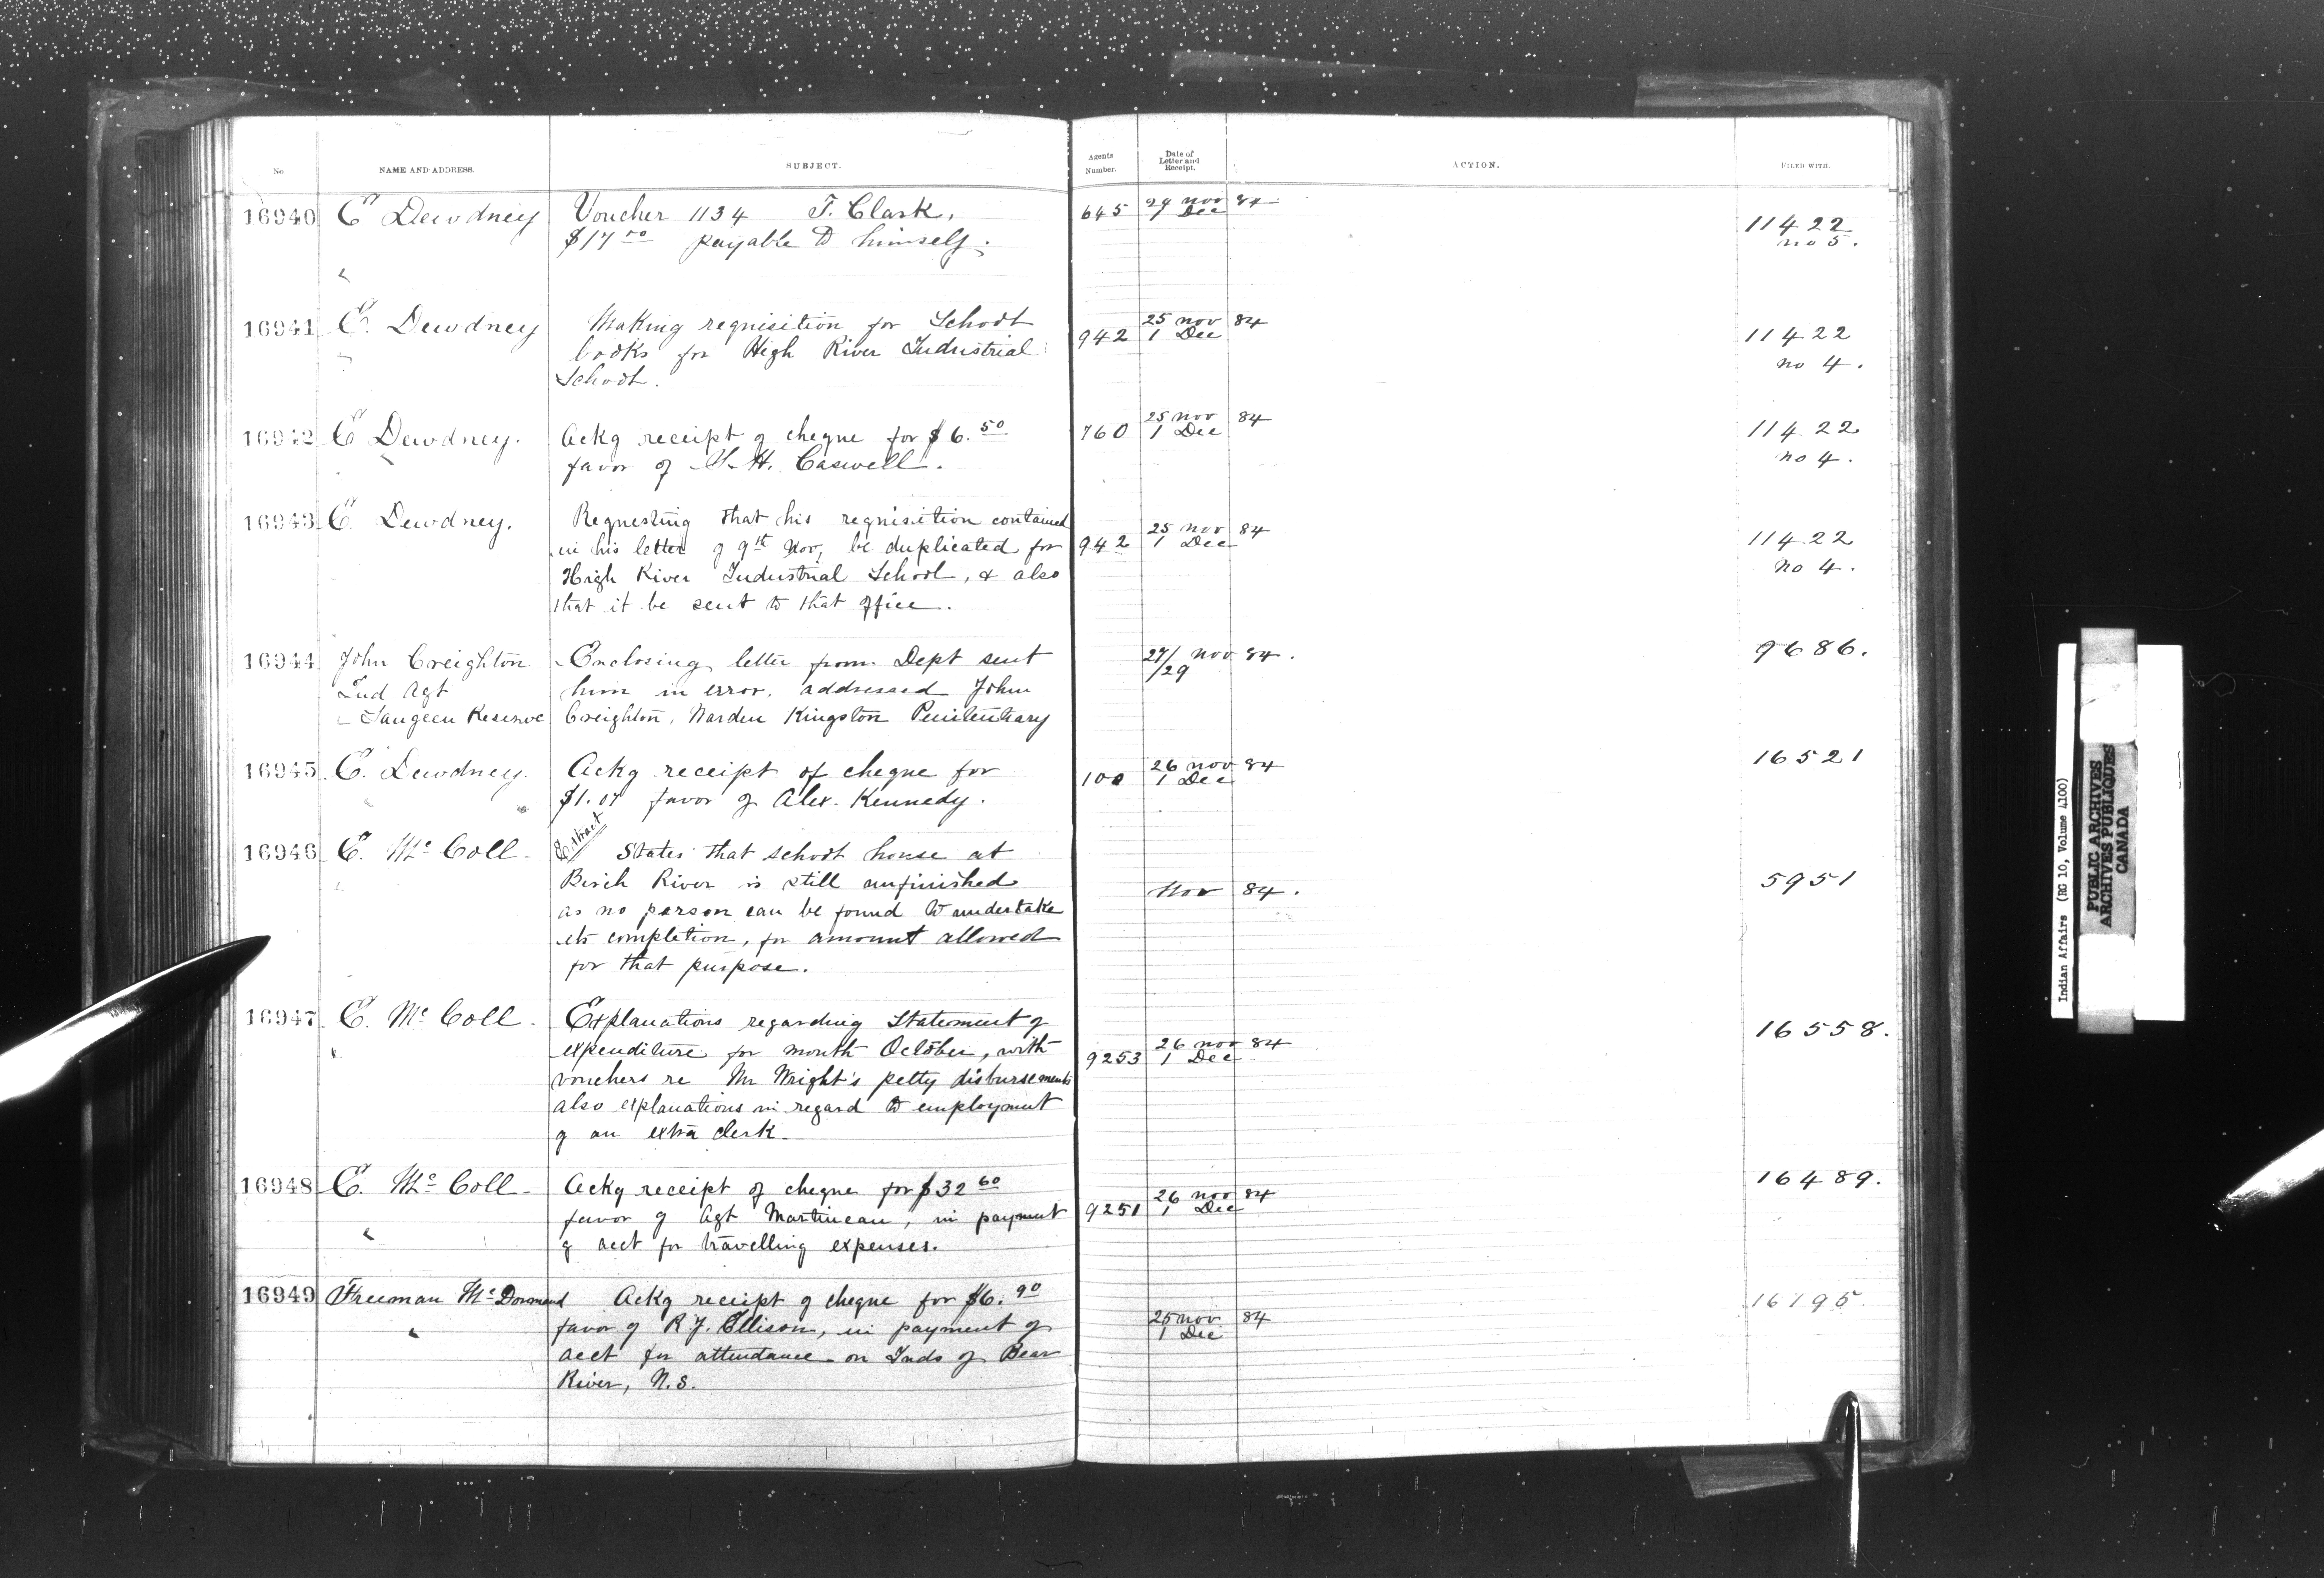 No
NAME AND ADDRESS.
SUBJECT.
Agents Number.
Date of Letter and Receipt.
ACTION.
FILED WITH.
16940 E Dewdney Voucher 1134 T. Clark, 645 29 Nov 84
$17 50 payable to himself. Dec
11422
no 5.
16941 E. Dewdney Making requisition for School 942 25 Nov 84 11422
books for High River Industrial 1 Dec
School. no 4.
16942 E Dewdney. Ackg receipt of cheque for $6.50 760 25 Nov 84 11422
favor of H. Caswell. 1 Dec no 4.
16943 E. Dewdney. Requesting that his requisition contained
in his letter of 9th Nov, be duplicated for 942 25 Nov 84 11422
High River Industrial School, & also 1 Dec no 4.
that it be sent to that office.
16944 John Creighton Enclosing letter from Dept sent 27/29 Nov 84. 9686.
Ind Agt him in error, addressed John
Saugeen Reserve Creighton, Warden Kingston Penitentiary
16945 E. Dewdney. Ackg receipt of cheque for 100 26 Nov 84 16521
$1.07 favor of Alex. Kennedy. 1 Dec
16946 E. McColl Extract States that school house at
Birch River is still unfinished Nov 84. 5951
as no person can be found to undertake
its completion, for amount allowed
for that purpose.
16947 E. McColl. Explanations regarding Statement of 16558.
expenditure for month October, with 9253 26 Nov 84
vouchers re Mr Wright's petty disbursements 1 Dec
also explanations in regard to employment
of an extra clerk.
16948 E. McColl Ackg receipt of cheque for $32 60 16489.
favor of Agt Martineau, in payment 9251 26 Nov 84
of acct for travelling expenses. 1 Dec
16949 Freeman McDormand Ackg receipt of cheque for $6.90 16195
favor of R J. Ellison, in payment of 25 Nov 84
acct for attendance on Inds of Bear 1 Dec
River, N.S.
Indian Affairs (RG 10, Volume 4100)
PUBLIC ARCHIVES
ARCHIVES PUBLIQUES
CANADA